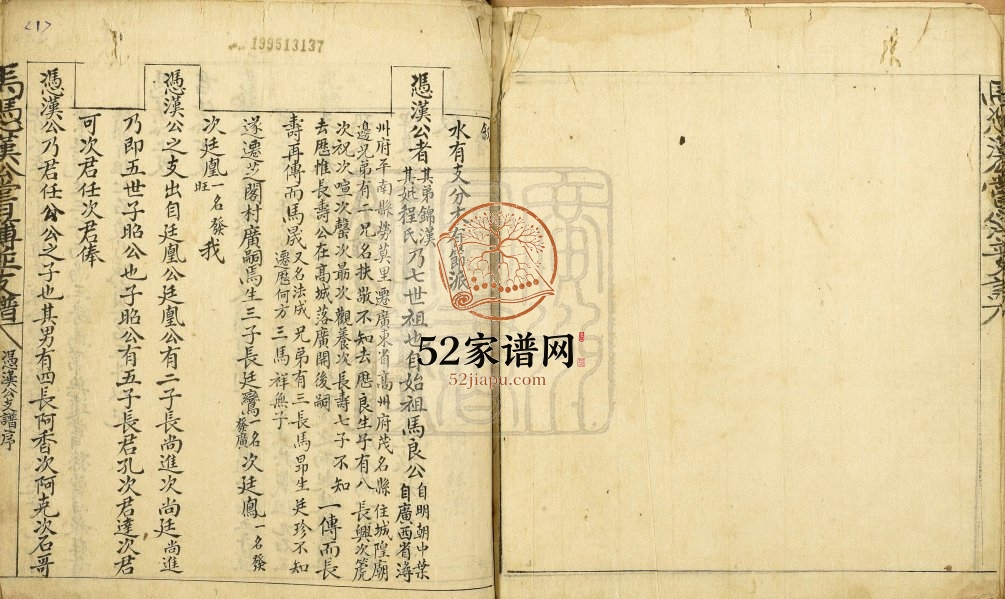 <1>
199513137
水有支分木有節派
馮漢公者其弟錦漢其妣程氏乃七世祖也自始祖馬良公自明朝中葉自廣西省潯
州府平南縣勞莫里遷廣東省高州府茂名縣住城隍廟
邊兄弟有二兄名扶散不知去歷良生子有八長興次篪
次祝次喧次罄次最次觀養次長壽七子不知
去歷惟長壽公在高城落廣開後嗣一傳而長
壽再傳而馬晟又名法成兄弟有三長馬昂生廷珍不知
遷歷何方三馬祥無子
遂遷芝閣村廣嗣焉生三子長廷鸞一名發廣次廷鳳一名發
次廷凰一名發旺我
馮漢公之支出自廷凰公廷凰公有二子長尚進次尚廷尚進
乃即五世子昭公也子昭公有五子長君孔次君達次君
可次君任次君俸
馮漢公乃君任公公之子也其男有四長阿香次阿克次石哥
馮漢公支譜序
52家谱网
52jiapu.com